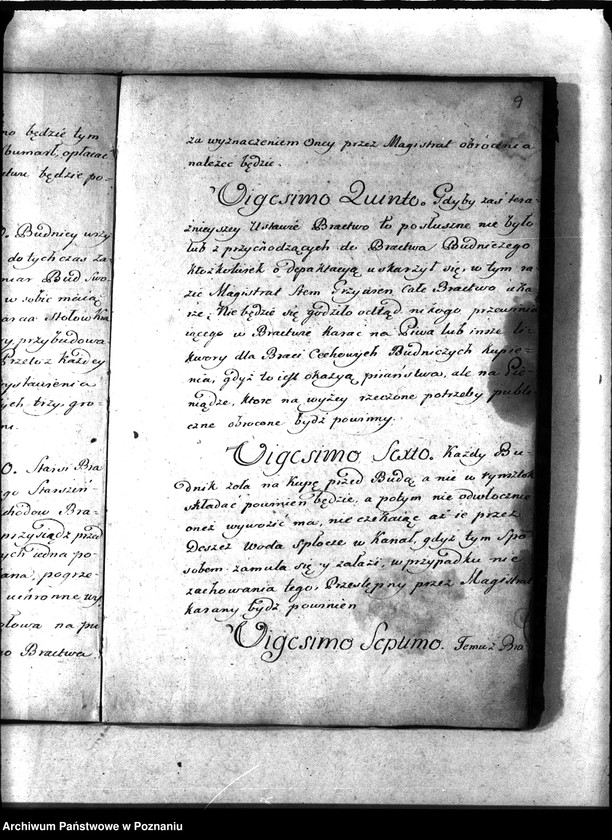 no będzie tym
bumarł, opłacac
ctwu będzie po-
O. Budnicy wszy
do tych czas za
miar Bud swo
w sobie maią
y przybudowa
Przeto z każdey
wystawienia
ych trzy gro-
O. Starsi Bra
go Starszeń
chodow Bra-
przysiądz przed
ych udna po-
ana, pogrze-
uchronne wy
ołowa na pu
o Bractwa.
9
za wyznaczeniem oney przez Magistrat obrócenia
należec będzie.
Vigesimo Quinto. Gdyby zaś tera-
źnieyszey Ustawie Bractwo to posłuszne nie było
lub z przychodzących do Bractwa Budniczego
ktożkolwiek o depaktacyą uskarzył się, w tym ra-
zie Magistrat Stem Grzywien Całe Bractwo uka-
rze; Nie będzie się godziło odtąd nikogo przewinia
iącego w Bractwie karac na Piwa lub insze li-
kwory dla Braci Cechowych Budniczych kupie-
nia, gdyż to iest okazyą piiaństwa, ale na Pie-
niądze, ktore na wyżey rzeczone potrzeby publi-
czne obrocone bydź powinny.
Vigesimo Sexto. Każdy Bu-
dnik zola na kupę przed Budą a nie w rynsztok
składać powinien będzie, a potym nie odwłocznie
oneż wywozić ma, nie czekaiąc aż ie przez
Deszcz Woda spłocze w Kanał, gdyż tym spo
sobem zamula się y zalazi, w przypadku nie
zachowania tego, Przestępny przez Magistrat
karany bydź powinien
Vigesimo Septimo. Temuż Bra
Archiwum Państwowe w Poznaniu